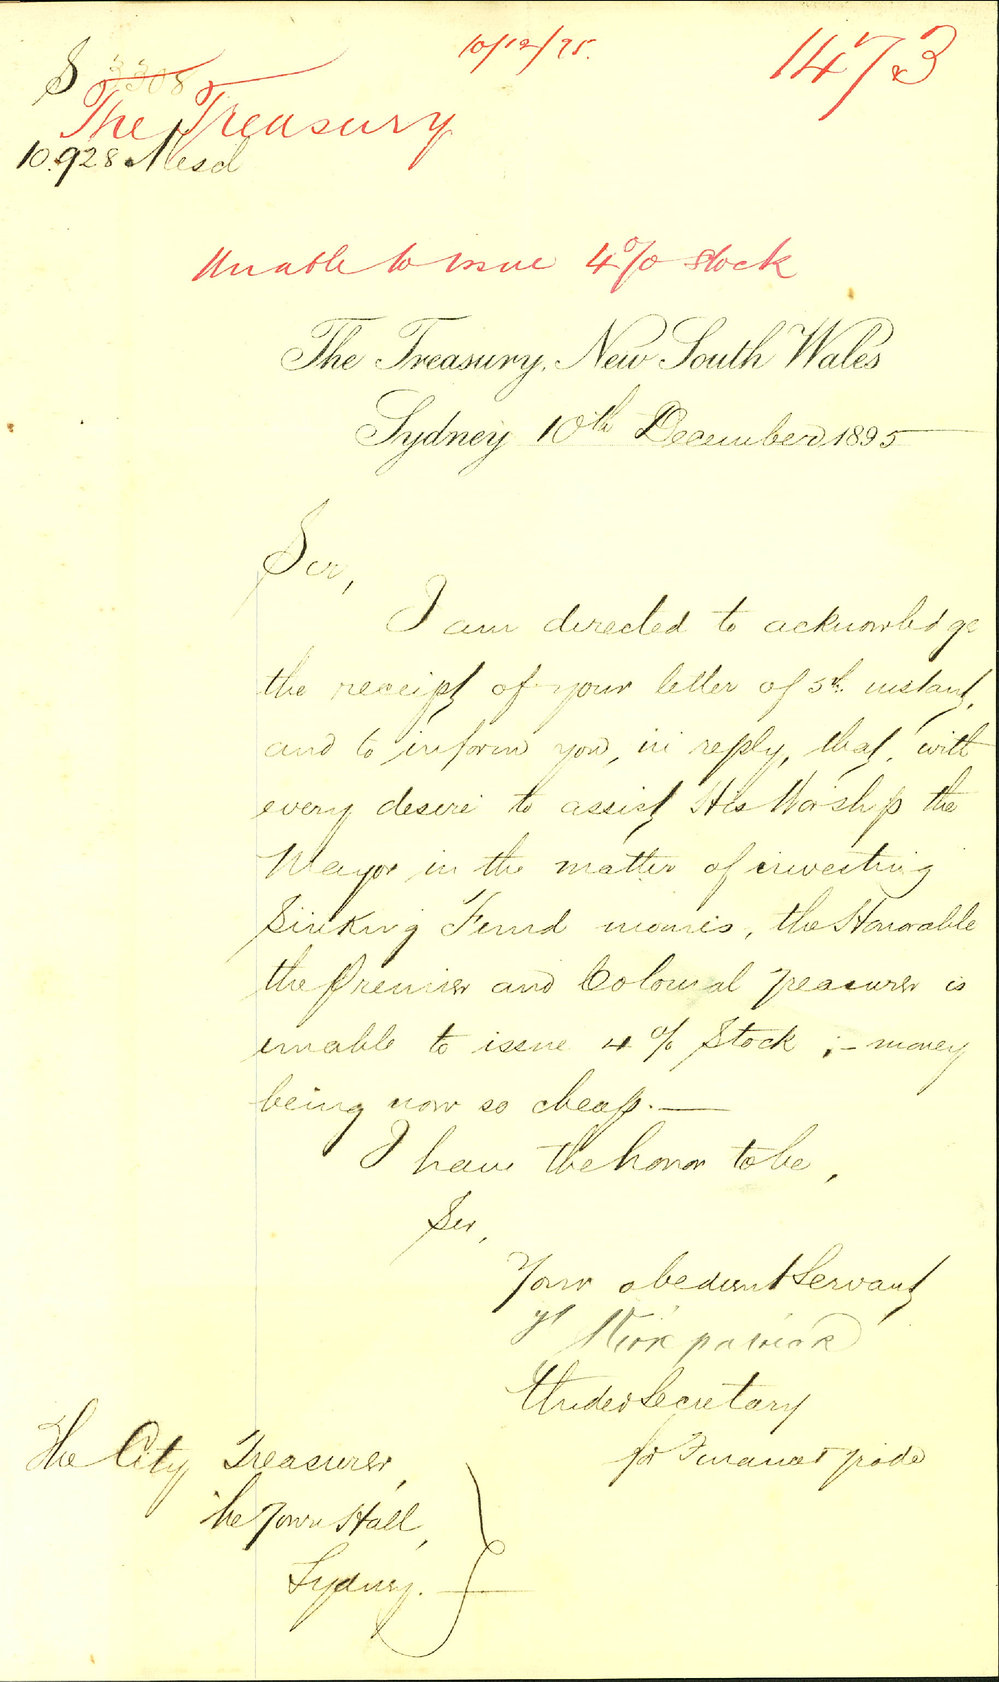 10/12/95.
1473
S 3308
The Treasury
10.928 Mesd
Unable to issue 4% stock
The Treasury, New South Wales
Sydney 10th December 1895
Sir,
I am directed to acknowledge
the receipt of your letter of 5th. instant,
and to inform you, in reply, that, with
every desire to assist His Worship the
Mayor in the matter of investing
Sinking Fund monies, the Honorable
the Premier and Colonial Treasurer is
unable to issue 4% Stock ;- money
being now so cheap.—
I have the honor to be,
Sir,
Your obedient Servant,
Kirkpatrick
Under Secretary
for Finance & Trade
The City Treasurer,
The Town Hall,
Sydney.